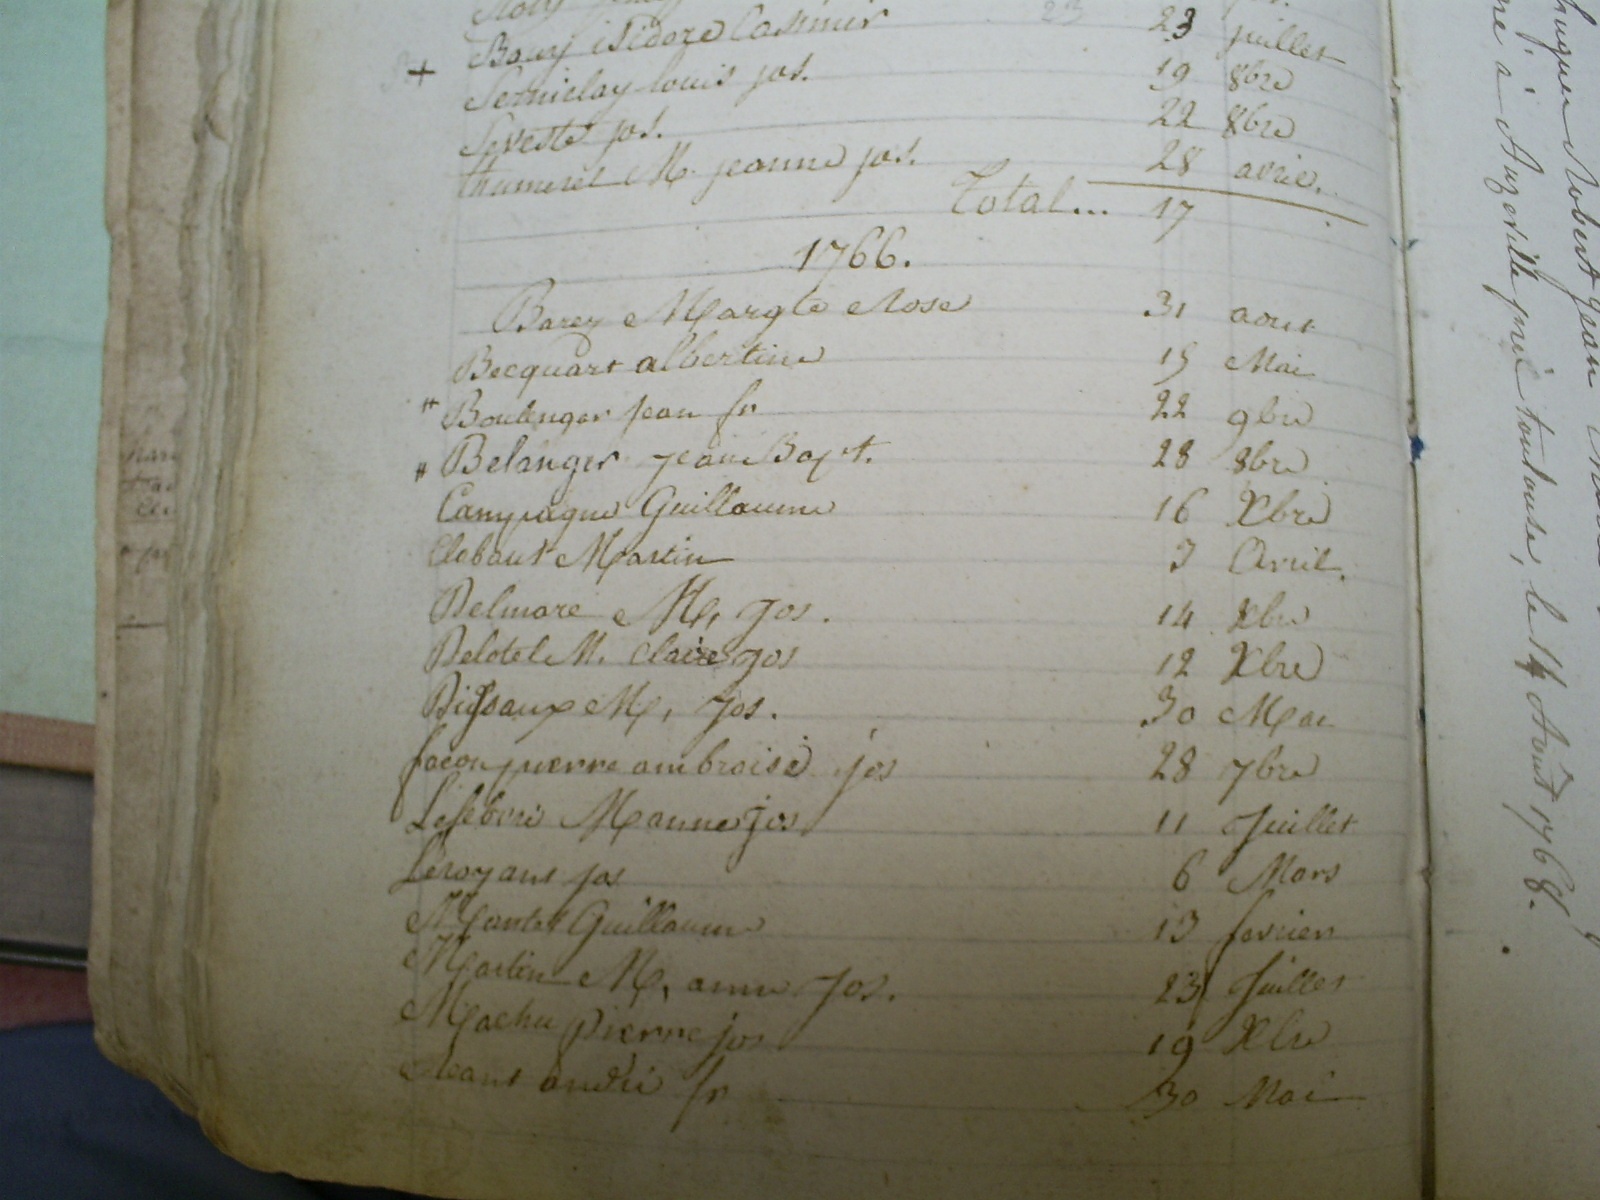 Bouy isidore Casimir 23 juillet
+ Serniclay louis jos. 19 8bre
Seveste jos. 22 8bre
thumerel M. jeanne jos. 28 avril.
Total... 17
1766.
Barez Margte Rose 31 aout
Becquart albertine 15 Mai
" Boulenger jean fr 22 9bre
" Belanger jean Bapt. 28 8bre
Campagne Guillaume 16 Xbre
Clabaut Martin 3 Avril.
Delmare M, Jos. 14 Xbre
Delotel M. Claire jos 12 Xbre
M, Jos. 30 Mai
facon pierre ambroise jos 28 7bre
Lefebvre M anne jos 11 Juillet
Leroy ans jos 6 Mars
Guillaume 13 fevrier
Martin M, anne Jos. 23 Juillet
Machu pierre jos 19 Xbre
andré fr 30 Mai
Robert Jean
né à Auzeville près toulouse, le 14 Août 1768.